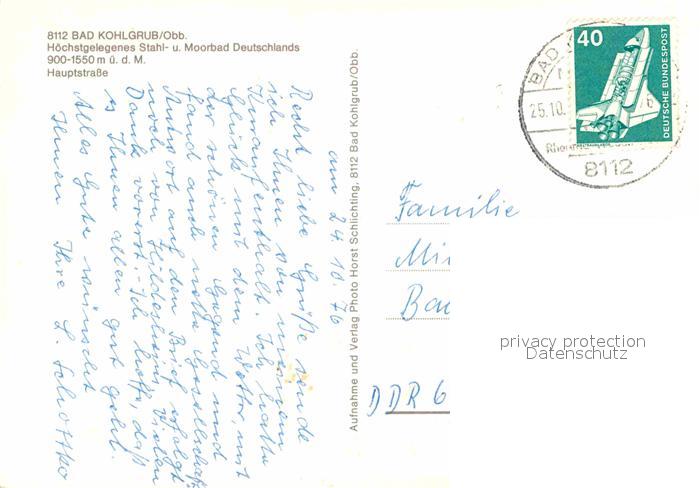 8112 BAD KOHLGRUB/Obb.
Höchstgelegenes Stahl- u. Moorbad Deutschlands
900-1550 m ü. d. M.
Hauptstraße
am 24.10.76
Recht liebe Grüße sende
ich Ihnen von meinem
Kuraufenthalt. Ich hatte
Glück mit dem Wetter, mit
der schönen Gegend und
fand auch nette Gesellschaft
Antwort auf den Brief erfolgt
noch von Hildesheim. Vielen
Dank vorerst. Ich hoffe, daß
es Ihnen allen gut geht.
Alles Gute wünscht
Ihnen Ihre L. Schottko
Aufnahme und Verlag Photo Horst Schlichting, 8112 Bad Kohlgrub/Obb.
40
DEUTSCHE BUNDESPOST
BAD
25.10.
6
8112
Familie
DDR 6
privacy protection
Datenschutz